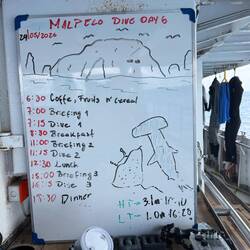 MALPELO DIVE DAY 6
6:30 Coffe, Fruits n' Cereal
7:00 Briefing 1
7:15 Dive 1
8:30 Breakfast
11:00 Briefing 2
11:15 Dive 2
12:30 Lunch
15:00 Briefing 3
15:15 Dive 3
17:30 Dinner
HT →
LT → 16:20